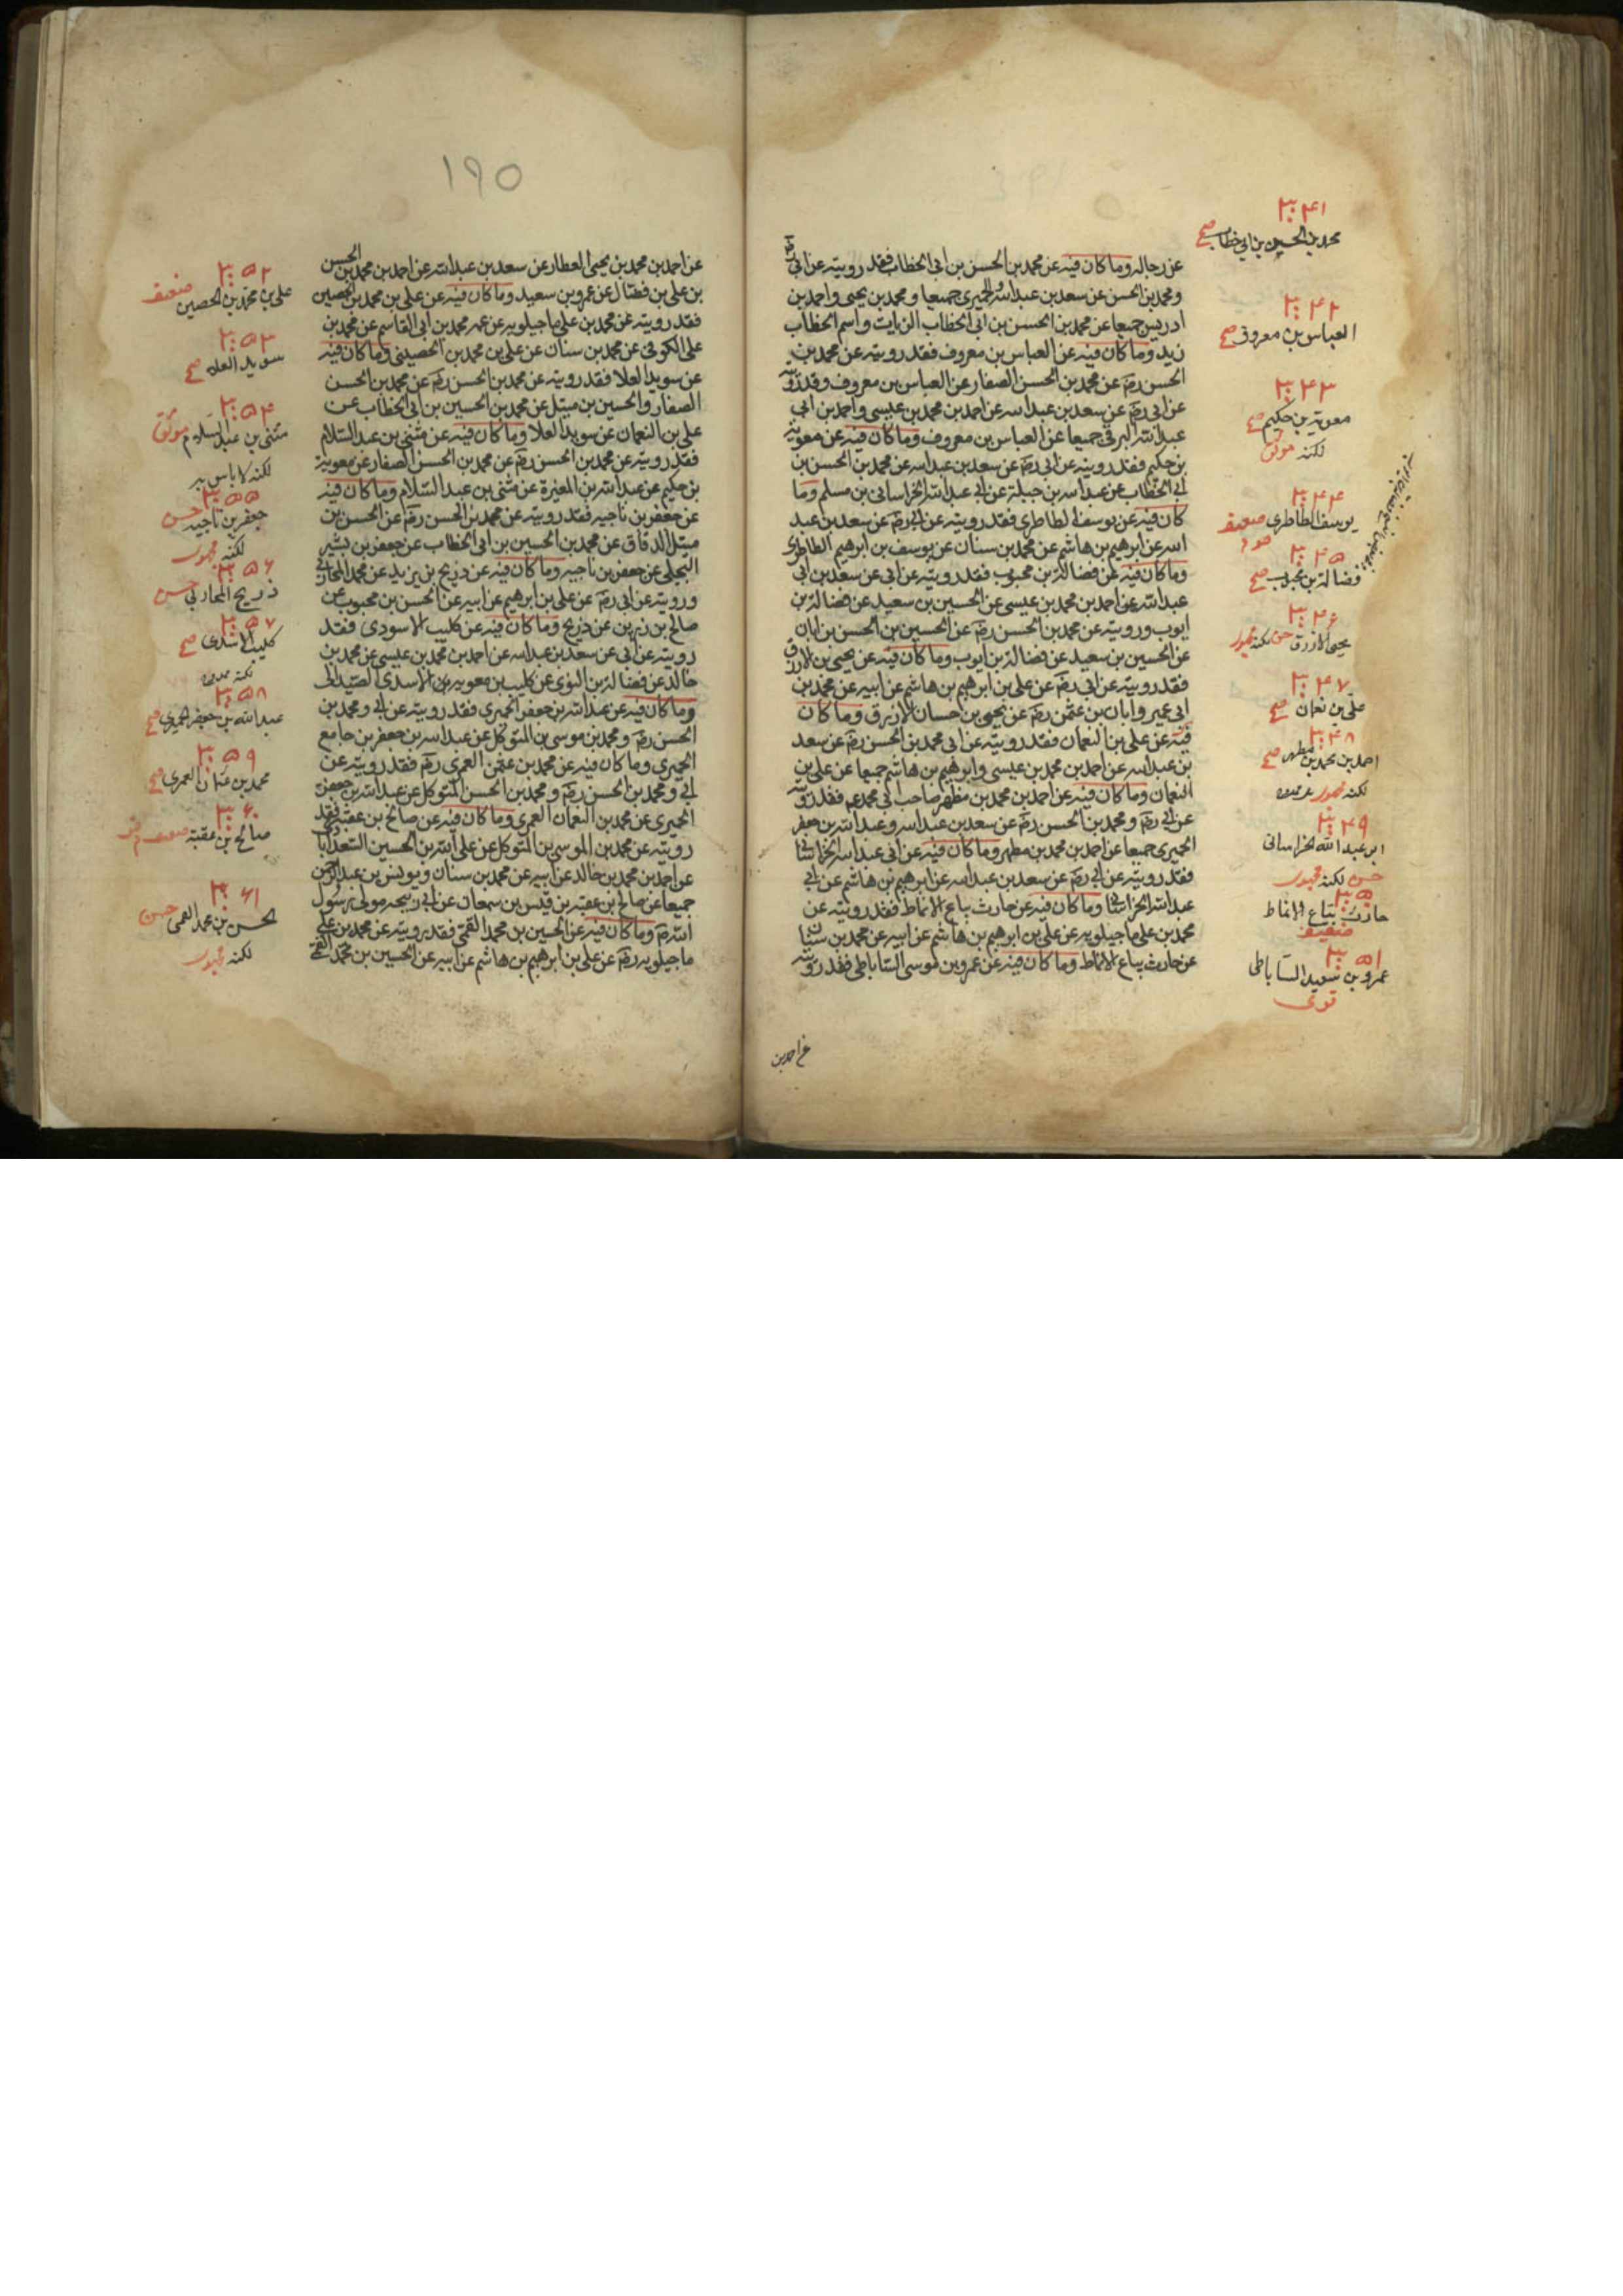 عن رجاله وما كان فيه عن محمد بن الحسن بن ابى الخطاب فقد رويته عن ابى رضم
ومحمد بن الحسن عن سعد بن عبدالله والحميرى جميعا ومحمد بن يحيى واحمد بن
ادريس جميعا عن محمد بن الحسن بن ابى الخطاب الزيات واسم الخطاب
زيد وما كان فيه عن العباس بن معروف فقد رويته عن محمد بن
الحسن رضم عن محمد بن الحسن الصفار عن العباس بن معروف وقد رويته
عن ابى رضم عن سعد بن عبدالله عن احمد بن محمد بن عيسى واحمد بن ابى
عبدالله البرقى جميعا عن العباس بن معروف وما كان فيه عن معوية
بن حكيم فقد رويته عن ابى رضم عن سعد بن عبدالله عن محمد بن الحسن بن
ابى الخطاب عن عبدالله بن جبلة عن ابى عبدالله الخراسانى بن مسلم وما
كان فيه عن يوسف الطاطرى فقد رويته عن ابى رضم عن سعد بن عبد
الله عن ابرهيم بن هاشم عن محمد بن سنان عن يوسف بن ابرهيم الطاطرى
وما كان فيه عن فضالة بن محبوب فقد رويته عن ابى عن سعد بن ابى
عبدالله عن احمد بن محمد بن عيسى عن الحسين بن سعيد عن فضالة بن
ايوب ورويته عن محمد بن الحسن رضم عن الحسين بن الحسن بن ابان
عن الحسين بن سعيد عن فضالة بن ايوب وما كان فيه عن يحيى بن الازرق
فقد رويته عن ابى رضم عن على بن ابرهيم بن هاشم عن ابيه عن محمد بن
ابى عمير وابان بن عثمن رضم عن يحيى بن حسان الازرق وما كان
فيه عن على بن النعمان فقد رويته عن ابى محمد بن الحسن رضم عن سعد
بن عبدالله عن احمد بن محمد بن عيسى وابرهيم بن هاشم جميعا عن على بن
النعمان وما كان فيه عن احمد بن محمد بن مطهر صاحب ابى محمد عم فقد رويته
عن ابى رضم ومحمد بن الحسن رضم عن سعد بن عبدالله وعبدالله بن جعفر
الحميرى جميعا عن احمد بن محمد بن مطهر وما كان فيه عن ابى عبدالله الخراسانى
فقد رويته عن ابى رضم عن سعد بن عبدالله عن ابرهيم بن هاشم عن ابى
عبدالله الخراسانى وما كان فيه عن حارث بياع الانماط فقد رويته عن
محمد بن على ماجيلويه عن على بن ابرهيم بن هاشم عن ابيه عن محمد بن سنان
عن حارث بياع الانماط وما كان فيه عن عمرو بن موسى الساباطى فقد رويته
عن احمد بن
٣٠٤١
محمد بن الحسين بن ابى خطاب صح
٣٠٤٢
العباس بن معروف صح
٣٠٤٣
معوية بن حكيم صح
لكنه موثق
٣٠٤٤
يوسف الطاطرى ضعيف
٣٠٤٥
فضالة بن محبوب صح
٣٠٤٦
يحيى الازرق حسن لكنه مجهول
٣٠٤٧
على بن نعمان صح
٣٠٤٨
احمد بن محمد بن مطهر صح
لكنه مجهول
٣٠٤٩
ابو عبدالله الخراسانى
حسن لكنه مجهول
٣٠٥٠
حارث بياع الانماط
ضعيف
٣٠٥١
عمرو بن سعيد الساباطى
قوى
١٩٥
عن احمد بن محمد بن يحيى العطار عن سعد بن عبدالله عن احمد بن محمد بن الحسن
بن على بن فضال عن عمرو بن سعيد وما كان فيه عن على بن محمد بن الحصين
فقد رويته عن محمد بن على ماجيلويه عن عمه محمد بن ابى القاسم عن محمد بن
على الكوفى عن محمد بن سنان عن على بن محمد بن الحصينى وما كان فيه
عن سويد العلا فقد رويته عن محمد بن الحسن رضم عن محمد بن الحسن
الصفار والحسين بن ميتل عن محمد بن الحسين بن ابى الخطاب عن
على بن النعمان عن سويد العلا وما كان فيه عن مثنى بن عبد السلام
فقد رويته عن محمد بن الحسن رضم عن محمد بن الحسن الصفار عن معوية
بن حكيم عن عبدالله بن المغيرة عن مثنى بن عبد السلام وما كان فيه
عن جعفر بن ناجيه فقد رويته عن محمد بن الحسن رضم عن الحسن بن
ميتل الدقاق عن محمد بن الحسين بن ابى الخطاب عن جعفر بن بشير
البجلى عن جعفر بن ناجيه وما كان فيه عن ذريح بن يزيد عن محمد المحاربى
ورويته عن ابى رضم عن على بن ابرهيم عن ابيه عن الحسن بن محبوب عن
صالح بن زرين عن ذريح وما كان فيه عن كليب الاسودى فقد
رويته عن ابى عن سعد بن عبدالله عن احمد بن محمد بن عيسى عن محمد بن
خالد عن فضالة بن عن كليب بن معوية الاسدى الصيداوى
وما كان فيه عن عبدالله بن جعفر الحميرى فقد رويته عن ابى ومحمد بن
الحسن رضم ومحمد بن موسى بن المتوكل عن عبدالله بن جعفر بن جامع
الحميرى وما كان فيه عن محمد بن عثمن العمرى رضم فقد رويته عن
ابى ومحمد بن الحسن رضم ومحمد بن الحسن المتوكل عن عبدالله بن جعفر
الحميرى عن محمد بن النعمان العمرى وما كان فيه عن صالح بن عقبة فقد
رويته عن محمد بن الموسى بن المتوكل عن على بن الحسين السعدابادى
عن احمد بن محمد بن خالد عن ابيه عن محمد بن سنان ويونس بن عبد الرحمن
جميعا عن صالح بن عقبة بن قيس بن سمعان عن ابى ربيحه مولى رسول
الله صم وما كان فيه عن الحسين بن محمد القمى فقد رويته عن محمد بن على
ماجيلويه رضم عن على بن ابرهيم بن هاشم عن ابيه عن الحسين بن محمد القمى
٣٠٥٢
على بن محمد بن الحصين ضعيف
٣٠٥٣
سويد العلا صح
٣٠٥٤
مثنى بن عبد السلام موثق
لكنه لا باس به
٣٠٥٥
جعفر بن ناجيه حسن
لكنه مجهول
٣٠٥٦
ذريح المحاربى حسن
٣٠٥٧
كليب الاسدى صح
٣٠٥٨
عبدالله بن جعفر الحميرى صح
٣٠٥٩
محمد بن عثمان العمرى صح
٣٠٦٠
صالح بن عقبة ضعيف
٣٠٦١
الحسن بن محمد القمى حسن
لكنه مجهول